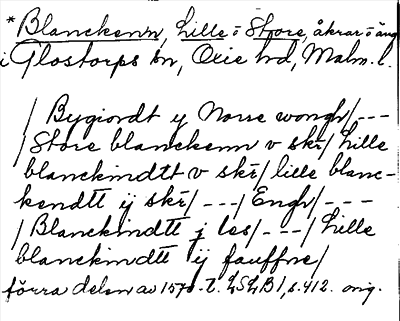 *Blanckenn, Lille o Store, åkrar o äng
i Glostorps sn, Oxie hd, Malm. l.
/ Bygiordt y Norre wongh/---
/Store blanckenn v skr/ Lille
blanckindtt v skr/ lille blanc-
kendtt ij skr/---/Engh/---
/Blanckindtt j les/---/Lille
blanckindtt ij fauffne/
förra delen av 1570-t. LSLB1, s. 412. orig.